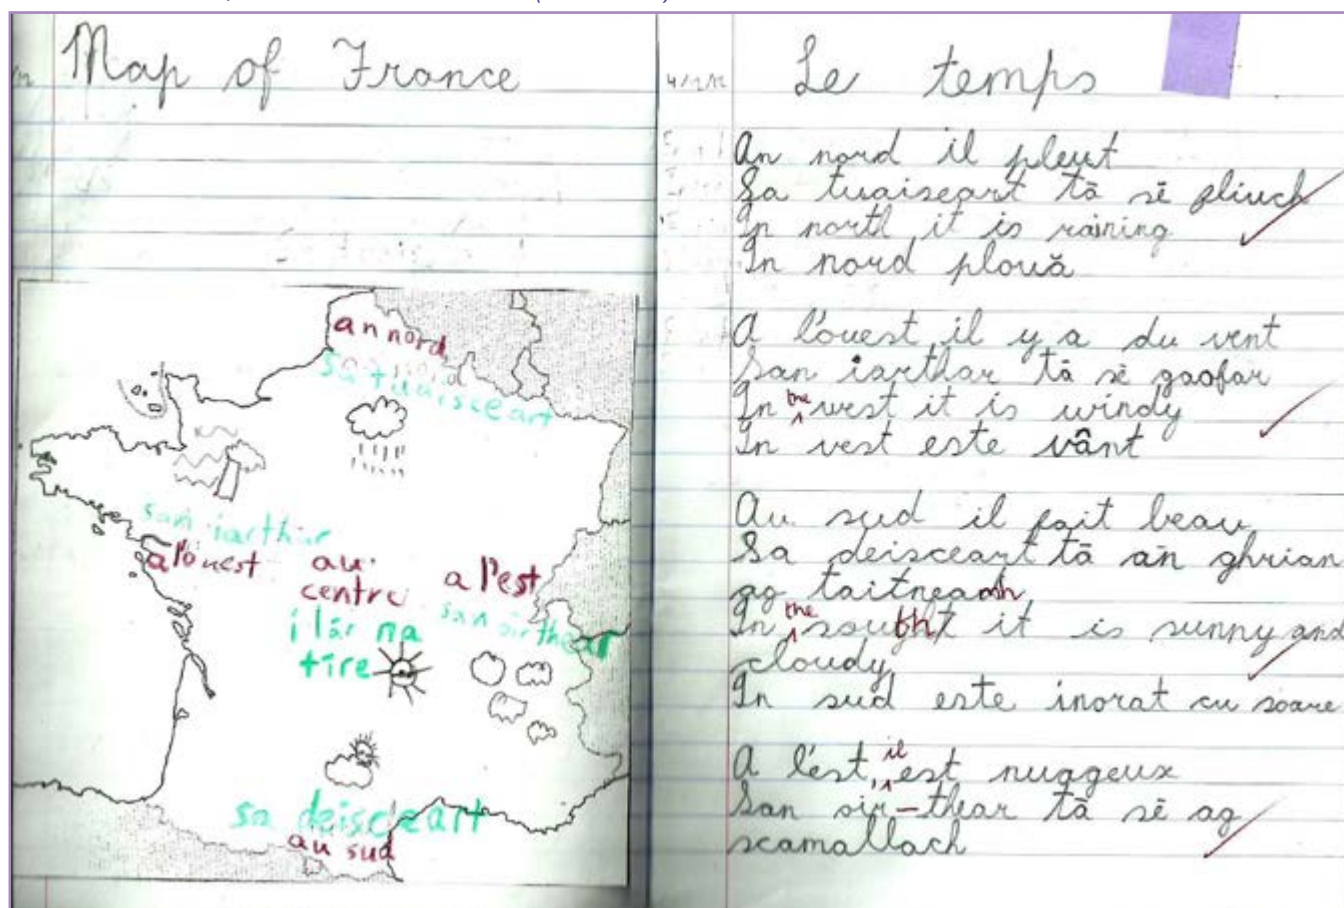 Map of France
an nord
sa tuaisceart
san iarthar
a l'ouest
au
centre
i lár na
tíre
a l'est
san oirthear
sa deisceart
au sud
4/12/12
Le temps
An nord il pleut
Sa tuaiseart tā sē pliuch
In north it is raining
In nord plouă
A l'ouest il y a du vent
San iarthar tā sē gaofar
In the west it is windy
In vest este vânt
Au sud il fait beau
Sa deisceart tā an ghrian
ag taitneamh
In the south it is sunny and
cloudy
In sud este inorat cu soare
A l'est, il est nuageux
San oir-thear tā sē ag
scamallach